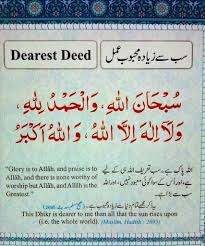 Dearest Deed
سب سے زیادہ محبوب عمل
سُبْحَانَ اللهِ، وَالْحَمْدُ لِلّٰهِ،
وَلَا اِلٰهَ اِلَّا اللهُ، وَاللهُ اَكْبَرُ
"Glory is to Allâh, and praise is to
Allâh, and there is none worthy of
worship but Allâh, and Allâh is the
Greatest."
This Dhikr is dearer to me than all that the sun rises upon
(i.e. the whole world). (Muslim, Hadith: 2695)